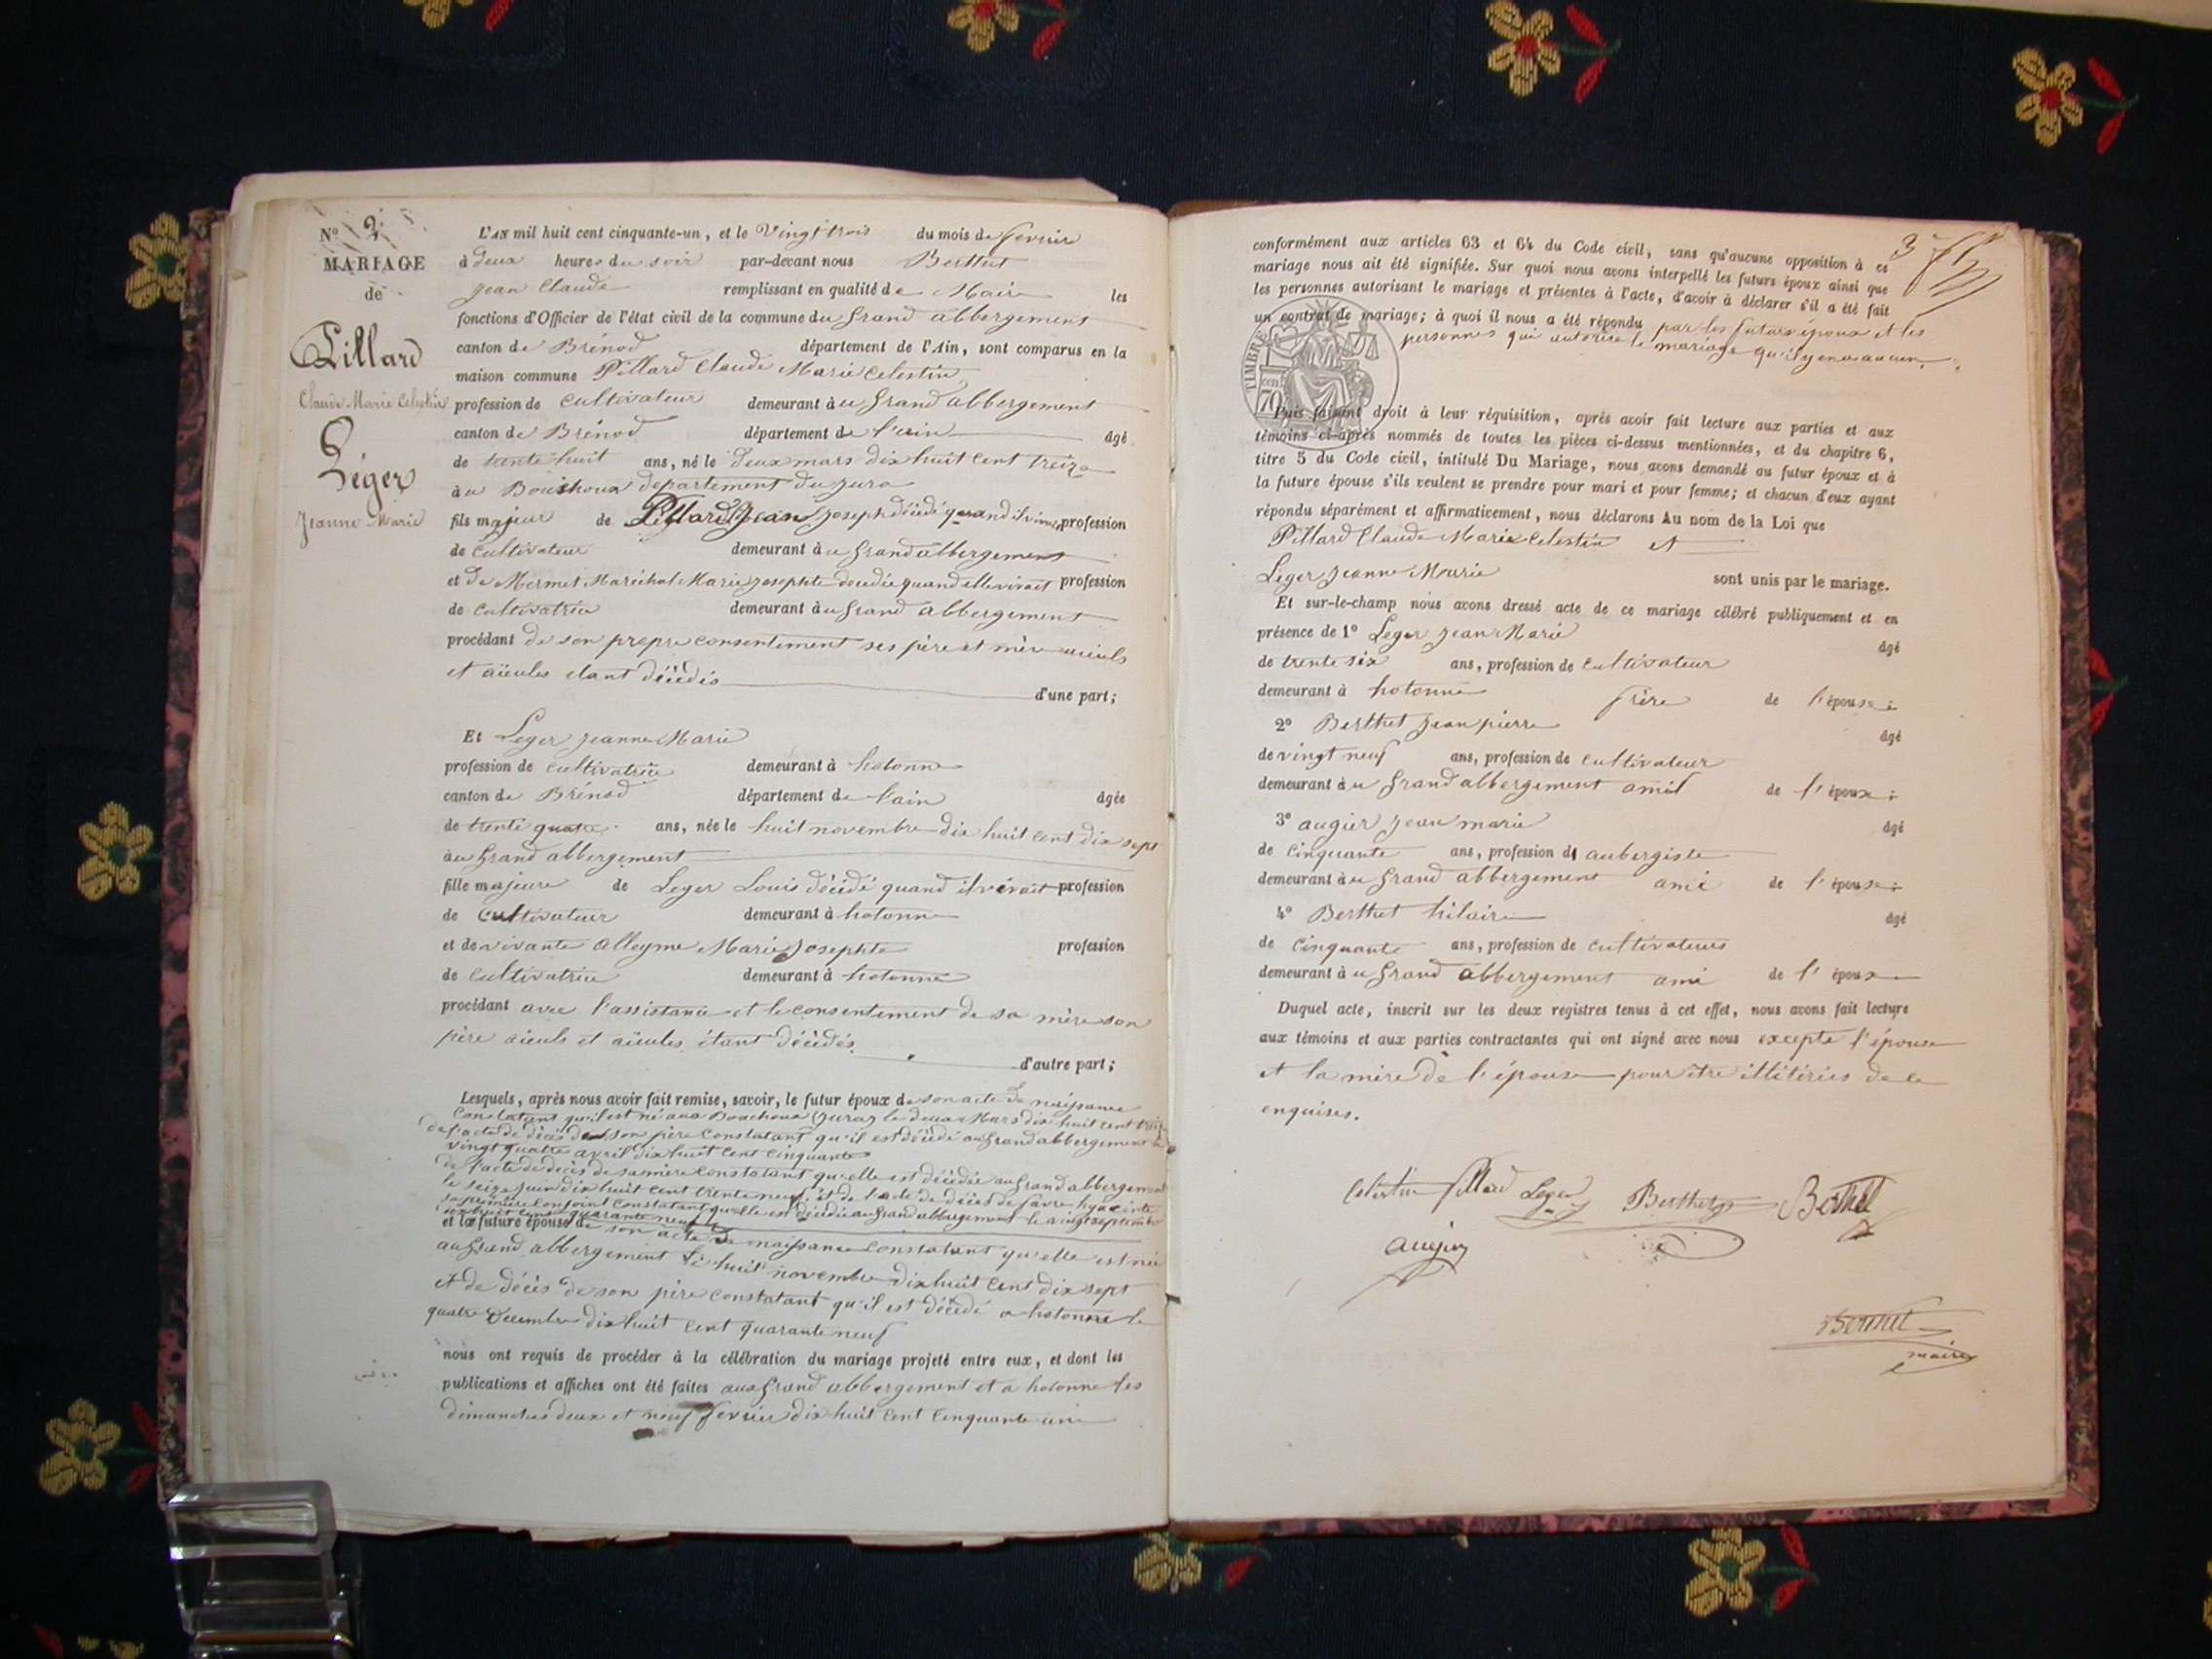 N° 2
MARIAGE
de
Pillard
Claude Marie Celestin
Léger
Jeanne Marie
L'AN mil huit cent cinquante-un, et le Vingt trois du mois de fevrier
à deux heures du soir par-devant nous Berthet
jean Claude remplissant en qualité de Maire les
fonctions d'Officier de l'état civil de la commune du Grand abbergement
canton de Brénod département de l'Ain, sont comparus en la
maison commune Pillard Claude Marie Celestin
profession de Cultivateur demeurant à u Grand abbergement
canton de Brénod département de l'ain âgé
de trente huit ans, né le deux mars dix huit cent treize
à u Bouchoux departement du jura
fils majeur de Pillard Jean Joseph décédé quand il vivait profession
de Cultivateur demeurant à u Grand abbergement
et de Mermet Maréchal Marie josephte décédée quand elle vivait profession
de Cultivatrice demeurant à u Grand abbergement
procédant de son propre consentement ses père et mère aieuls
et aïeules étant décédés d'une part;
Et Leger jeanne Marie
profession de Cultivatrice demeurant à hotonne
canton de Brénod département de l'ain âgée
de trente quatre ans, née le huit novembre dix huit cent dix sept
au Grand abbergement
fille majeure de Leger Louis décédé quand il vivait profession
de Cultivateur demeurant à hotonne
et de vivante Alleyme Marie josephte profession
de Cultivatrice demeurant à hotonne
procédant avec l'assistance et le consentement de sa mère son
père aieuls et aïeules étant décédés d'autre part;
Lesquels, après nous avoir fait remise, savoir, le futur époux de son acte de naissance
Constatant qu'il est né aux Bouchoux (jura) le deux Mars dix huit cent treize
de l'acte de décès de son père Constatant qu'il est décédé au Grand abbergement le
vingt quatre avril dix huit cent cinquante
de l'acte de décès de sa mère Constatant qu'elle est décédée au Grand abbergement
le seize juin dix huit cent trente neuf, et de l'acte de décès de favre hyacinte
sa première conjoint Constatant qu'elle est décédée au Grand abbergement le vingt septembre
dix huit cent quarante neuf
et la future épouse de son acte de naissance Constatant qu'elle est née
au Grand abbergement le huit novembre dix huit cent dix sept
et de décès de son père constatant qu'il est décédé a hotonne le
quatre Decembre dix huit cent quarante neuf
nous ont requis de procéder à la célébration du mariage projeté entre eux, et dont les
publications et affiches ont été faites aux Grand abbergement et a hotonne les
dimanches deux et neuf fevrier dix huit cent cinquante un
3
conformément aux articles 63 et 64 du Code civil, sans qu'aucune opposition à ce
mariage nous ait été signifiée. Sur quoi nous avons interpellé les futurs époux ainsi que
les personnes autorisant le mariage et présentes à l'acte, d'avoir à déclarer s'il a été fait
un contrat de mariage; à quoi il nous a été répondu par les futurs époux et les
personnes qui autorise le mariage qu'il y en a aucun
TIMBRE
70
Puis faisant droit à leur réquisition, après avoir fait lecture aux parties et aux
témoins ci-après nommés de toutes les pièces ci-dessus mentionnées, et du chapitre 6,
titre 5 du Code civil, intitulé Du Mariage, nous avons demandé au futur époux et à
la future épouse s'ils veulent se prendre pour mari et pour femme; et chacun d'eux ayant
répondu séparément et affirmativement, nous déclarons Au nom de la Loi que
Pillard Claude Marie Celestin et
Leger Jeanne Marie sont unis par le mariage.
Et sur-le-champ nous avons dressé acte de ce mariage célébré publiquement et en
présence de 1° Leger jean Marie âgé
de trente six ans, profession de Cultivateur
demeurant à hotonne frère de l'épouse;
2° Berthet jean pierre âgé
de vingt neuf ans, profession de Cultivateur
demeurant à u Grand abbergement amit de l'époux;
3° augier jean marie âgé
de Cinquante ans, profession d aubergiste
demeurant à u Grand abbergement ami de l'épouse;
4° Berthet hilaire âgé
de Cinquante ans, profession de Cultivateurs
demeurant à u Grand abbergement ami de l'époux
Duquel acte, inscrit sur les deux registres tenus à cet effet, nous avons fait lecture
aux témoins et aux parties contractantes qui ont signé avec nous excepté l'épouse
et la mère de l'épouse pour être illitérées de ce
enquises.
Celestin Pillard Leger Berthet Berthet
augier
Berthet
maire